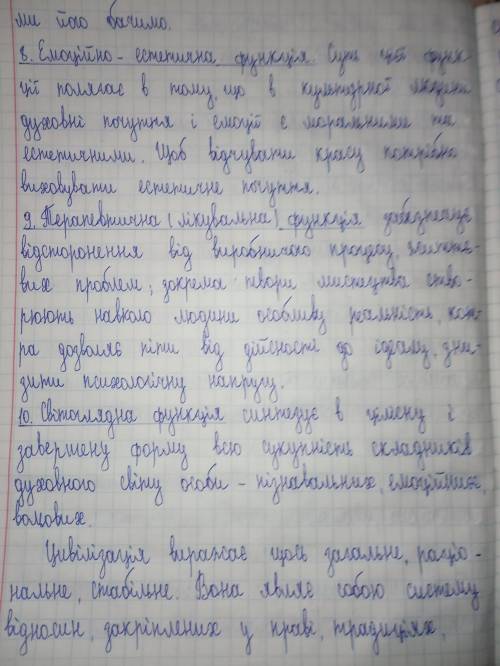 ми його бачимо.
8. Емоційно - естетична функція. Суть цієї функ-
ції полягає в тому, що в культурної людини
духовні почуття і емоції є моральними та
естетичними. Щоб відчувати красу потрібно
виховувати естетичне почуття.
9. Терапевтична (лікувальна) функція забезпечує
відсторонення від виробничого процесу, життє-
вих проблем; зокрема твори мистецтва ство-
рюють навколо людини особливу реальність, кот-
ра дозволяє піти від дійсності до ідеалу, зни-
зити психологічну напругу.
10. Світоглядна функція синтезує в цілісну і
завершену форму всю сукупність складників
духовного світу особи - пізнавальних, емоційних,
вольових.
Цивілізація виражає щось загальне, раціо-
нальне, стабільне. Вона являє собою систему
відносин, закріплених у праві, традиціях,